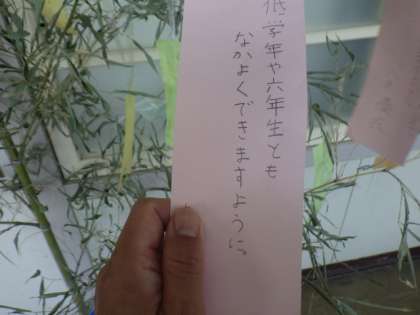 低学年や六年生とも
なかよくできますように。